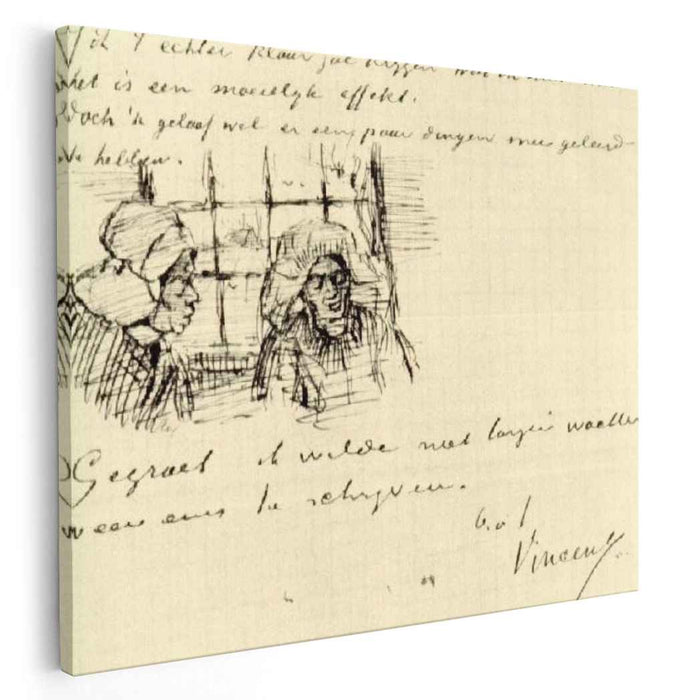 ik 't echter klaar zal krijgen
Het is een moeielyk effekt.
Doch 'k geloof wel er een paar dingen mee geleerd
te hebben.
Gegroet ik wilde niet langer wachten
weer eens te schryven.
b.à.t.
Vincent